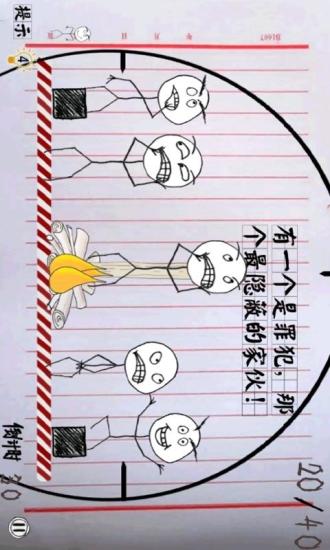 提示
4
日 月 年
有一个是罪犯，那
个最隐蔽的家伙！
20/40
30